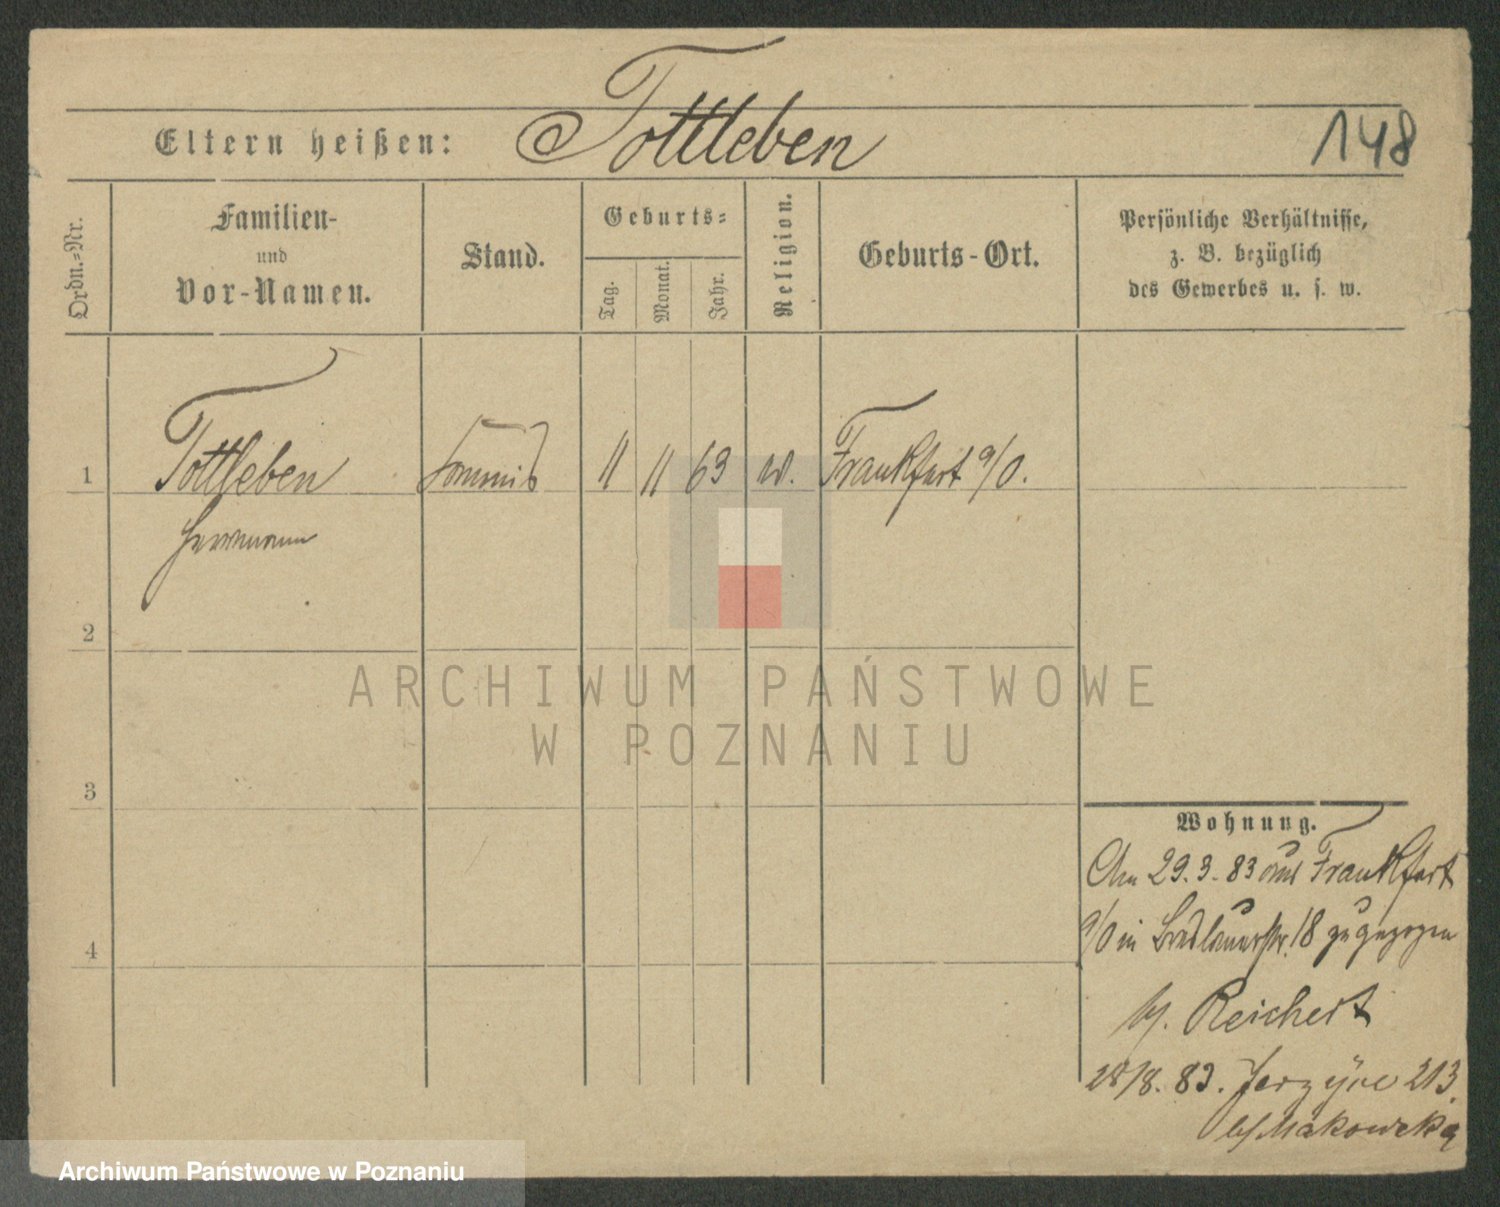 Eltern heißen: Tottleben
148
Ordn.=Nr.
Familien-
und
Vor-Namen.
Stand.
Geburts=
Tag.
Monat.
Jahr.
Religion.
Geburts-Ort.
Persönliche Verhältnisse,
z. B. bezüglich
des Gewerbes u. s. w.
1 Tottleben Commis 11 11 63 Frankfurt a/O.
Herrmann
2
ARCHIWUM PAŃSTWOWE
W POZNANIU
3
4
Wohnung.
Am 29.3.83 aus Frankfurt
a/O in 18 zugezogen
b/. Reichert
83. 213.
Archiwum Państwowe w Poznaniu